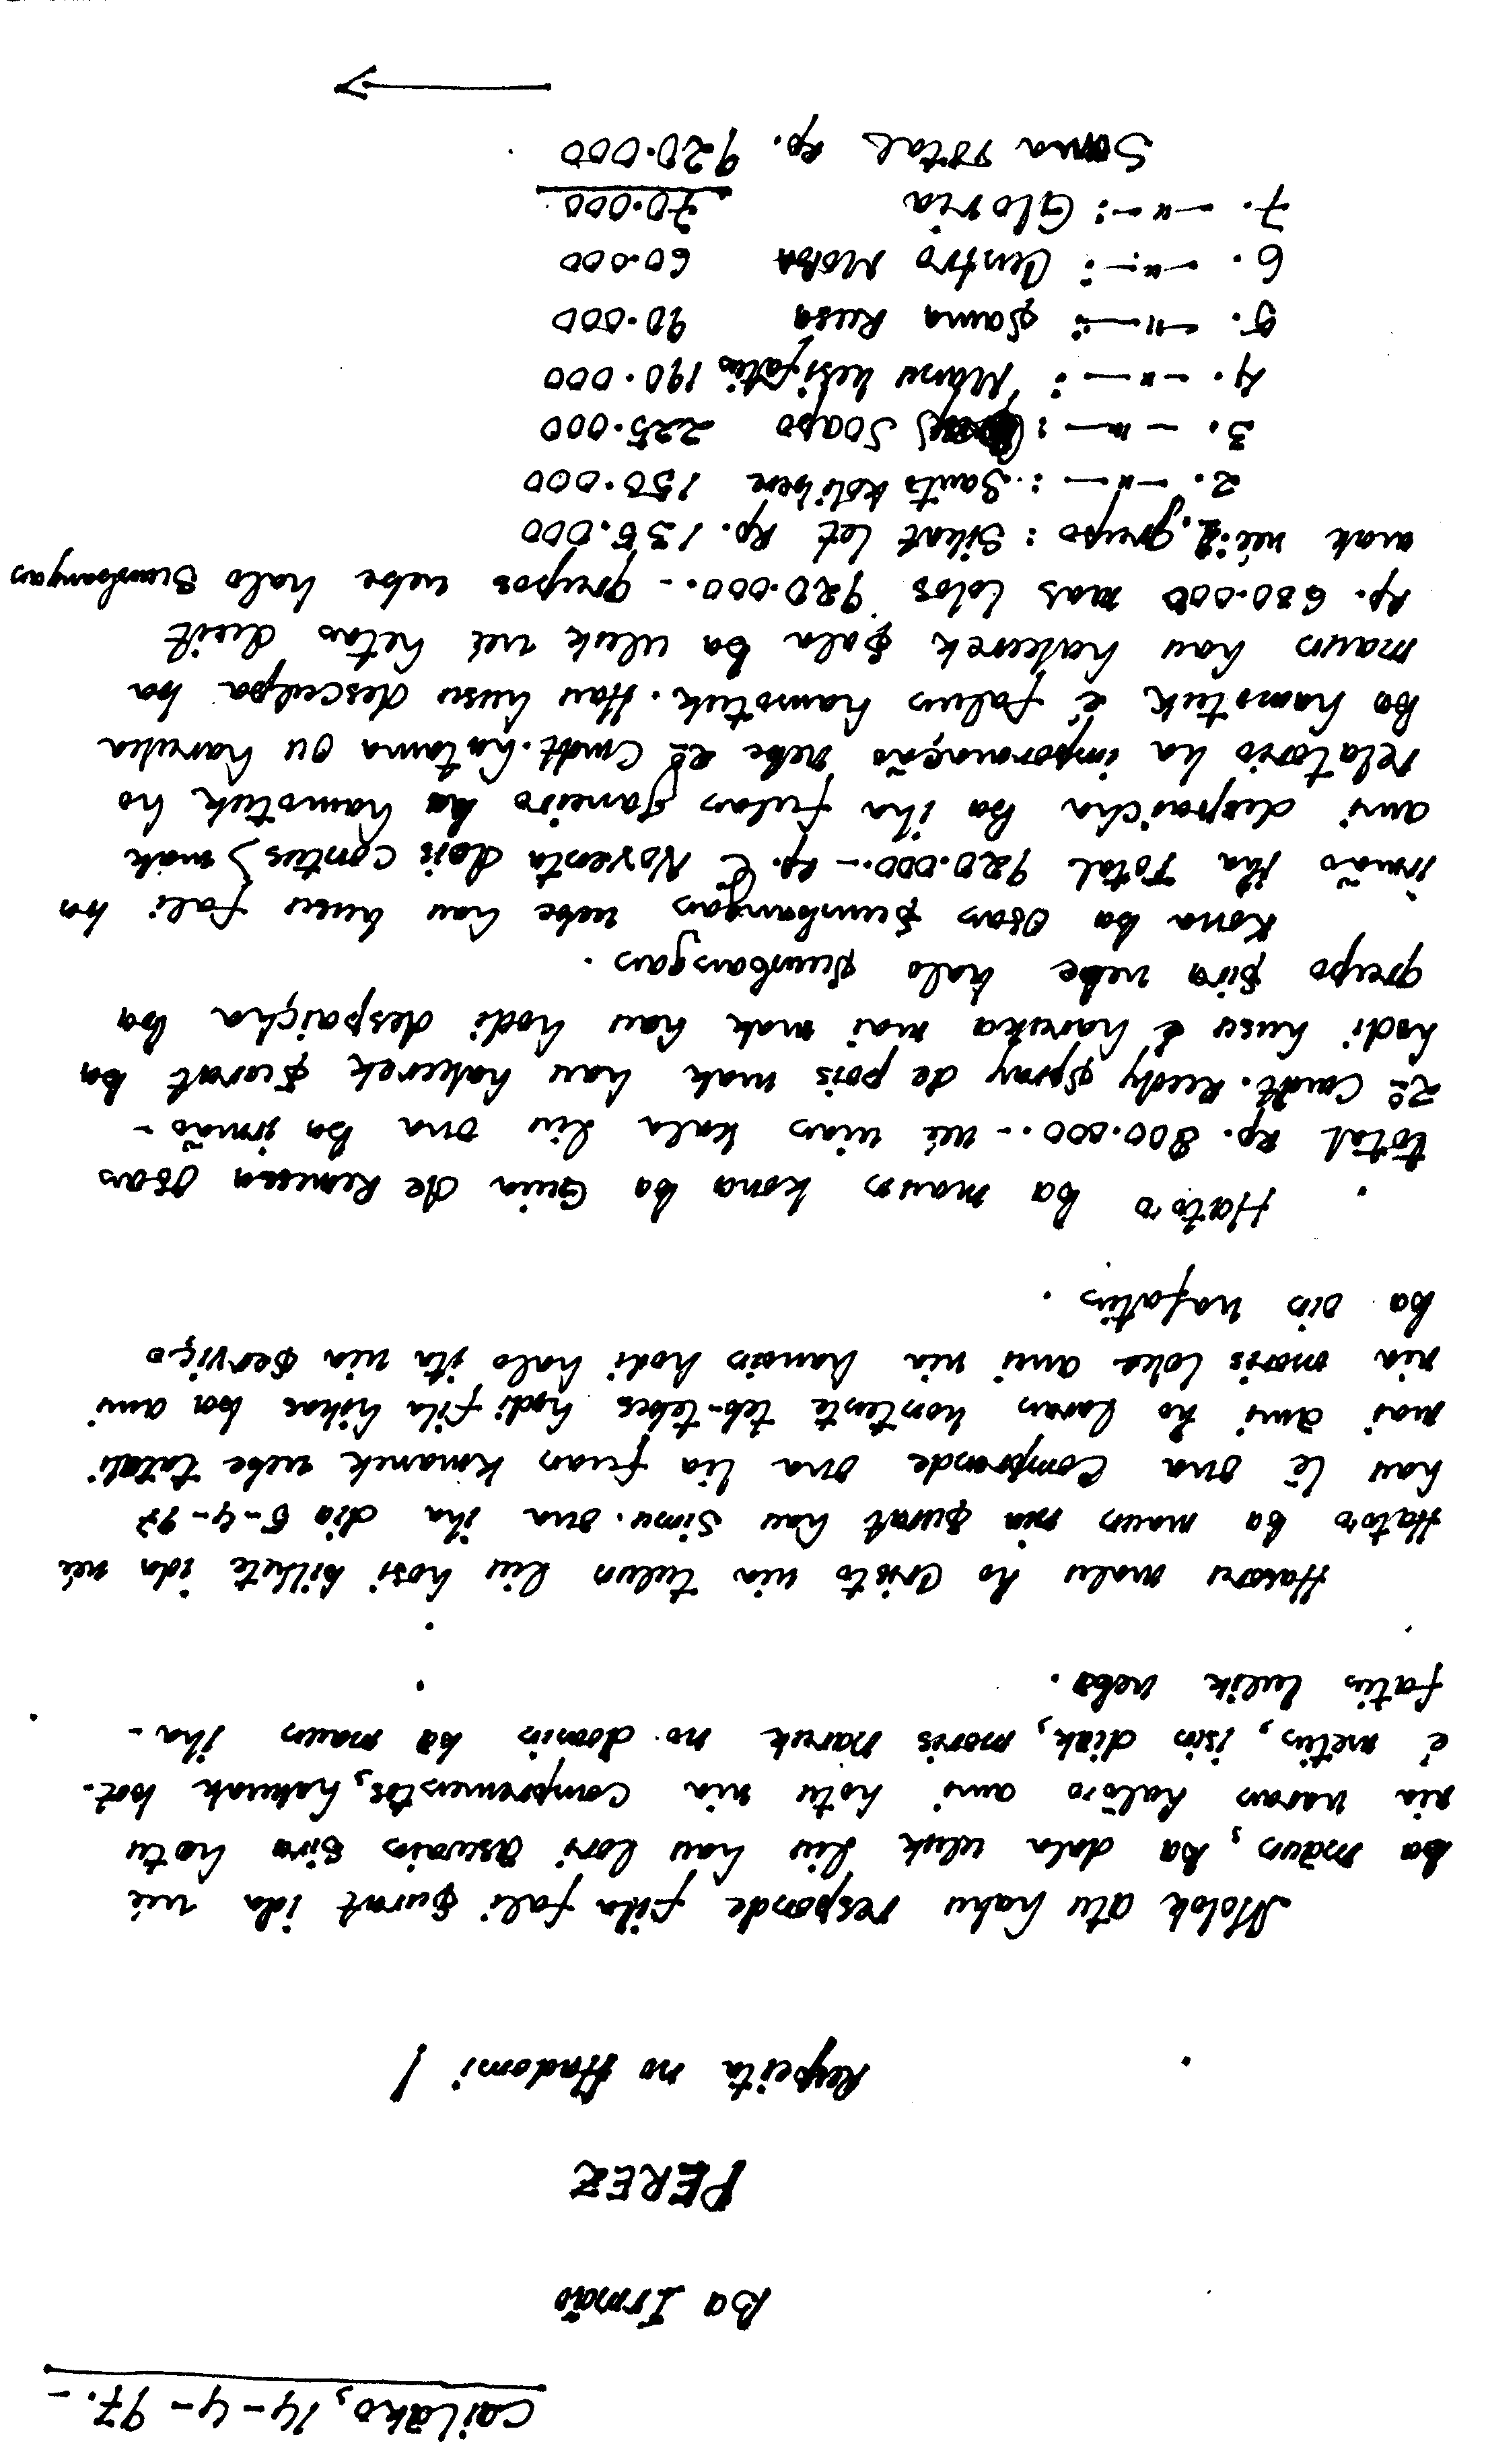 Cailāko, 14-4-97.-
Ba Irmão
PEREZ
Respeita no Hadomi !
Molok atu hahu responde fila fali surat ida né
ba maun, ba dala uluk liu hau lori aswain sira hotu
nia naran hatōro ami hotu nia comprementos, hakuak bot.
é metin, isin diak, moris naruk no domin ba maun iha -
fatin lulik neba.
Hasoru malu ho Cristo nia tulun liu hosi bilhete ida né
Hatoo ba maun nia surat hau simu ona iha dia 5-4-97
hau lê ona comprende ona lia fuan kmanek nebe tatoli
mai ami ho laran kontente teb-tebes hodi fila hikas ba ami
nia moris loke ami nia hanoin hodi halo ita nia serviço
ba oin nafatin.
Hatoo ba maun kona ba Guia de Remessa Osan
total Rp. 800.000.- né nian kala liu ona ba irmão -
2º Cmdt. Ruedy Spray de pois mak hau hakerek surat ba
hodi husu é haruka mai mak hau hodi despaicha ba
grupo sira nebe halo sumbangan.
Kona ba Osan sumbangan nebe hau husu fali ba
irmão iha Total 920.000.- Rp. (Noventa dois contus) mak
ami despaicha ba iha fulan Janeiro ba hamotuk ho
relatorio ha imformação nebe 2º Cmdt. hatama ou haruka
ba hamotuk é falun hamotuk. Hau husu desculpa ba
maun hau hakerek sala ba uluk né hetan deit
Rp. 680.000 mas lolos 920.000.- grupos nebe halo sumbangan
mak né: 1. grupo : Sikat let Rp. 135.000
2. -"- : Santo kolibere 150.000
3. -"- : Soapo 225.000
4. -"- : Manu kesi fatin 190.000
5. -"- : Sauna Rusa 90.000
6. -"- : Centro Moba 60.000
7. -"- : Gloria 70.000
Soma Total Rp. 920.000